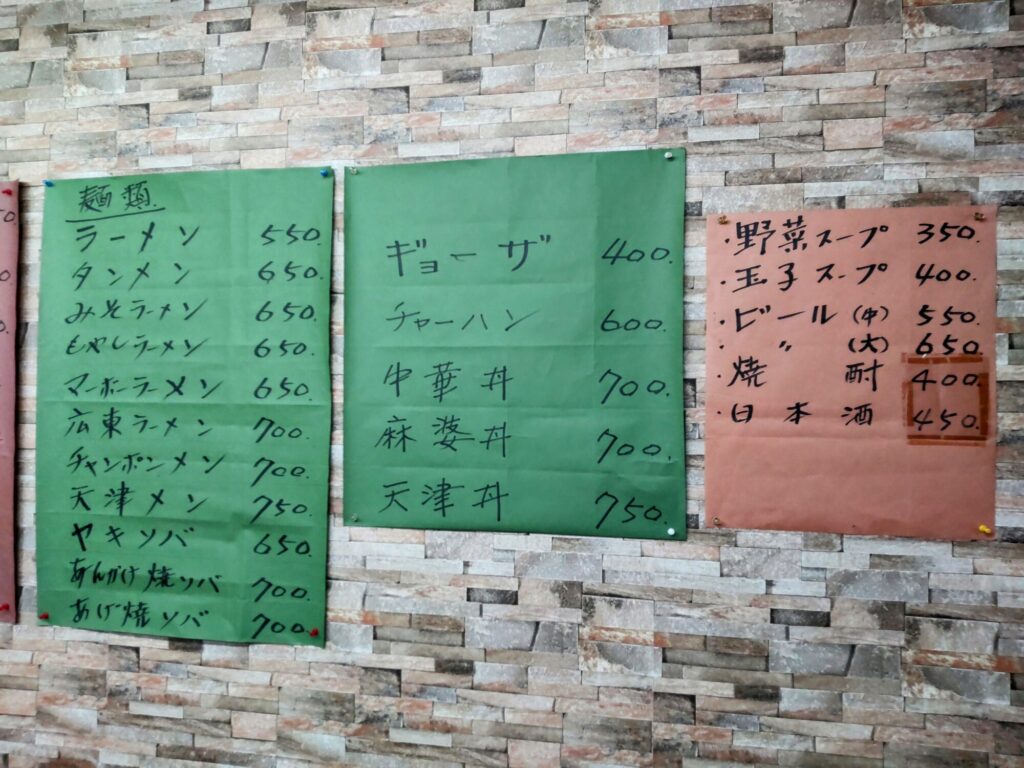 麺類
ラーメン 550.
タンメン 650.
みそラーメン 650.
もやしラーメン 650.
マーボーラーメン 650.
広東ラーメン 700.
チャンポンメン 700.
天津メン 750.
ヤキソバ 650.
あんかけ焼ソバ 700.
あげ焼ソバ 700.
ギョーザ 400.
チャーハン 600.
中華丼 700.
麻婆丼 700.
天津丼 750.
・野菜スープ 350.
・玉子スープ 400.
・ビール(中) 550.
・〃(大) 650.
・焼酎 400.
・日本酒 450.